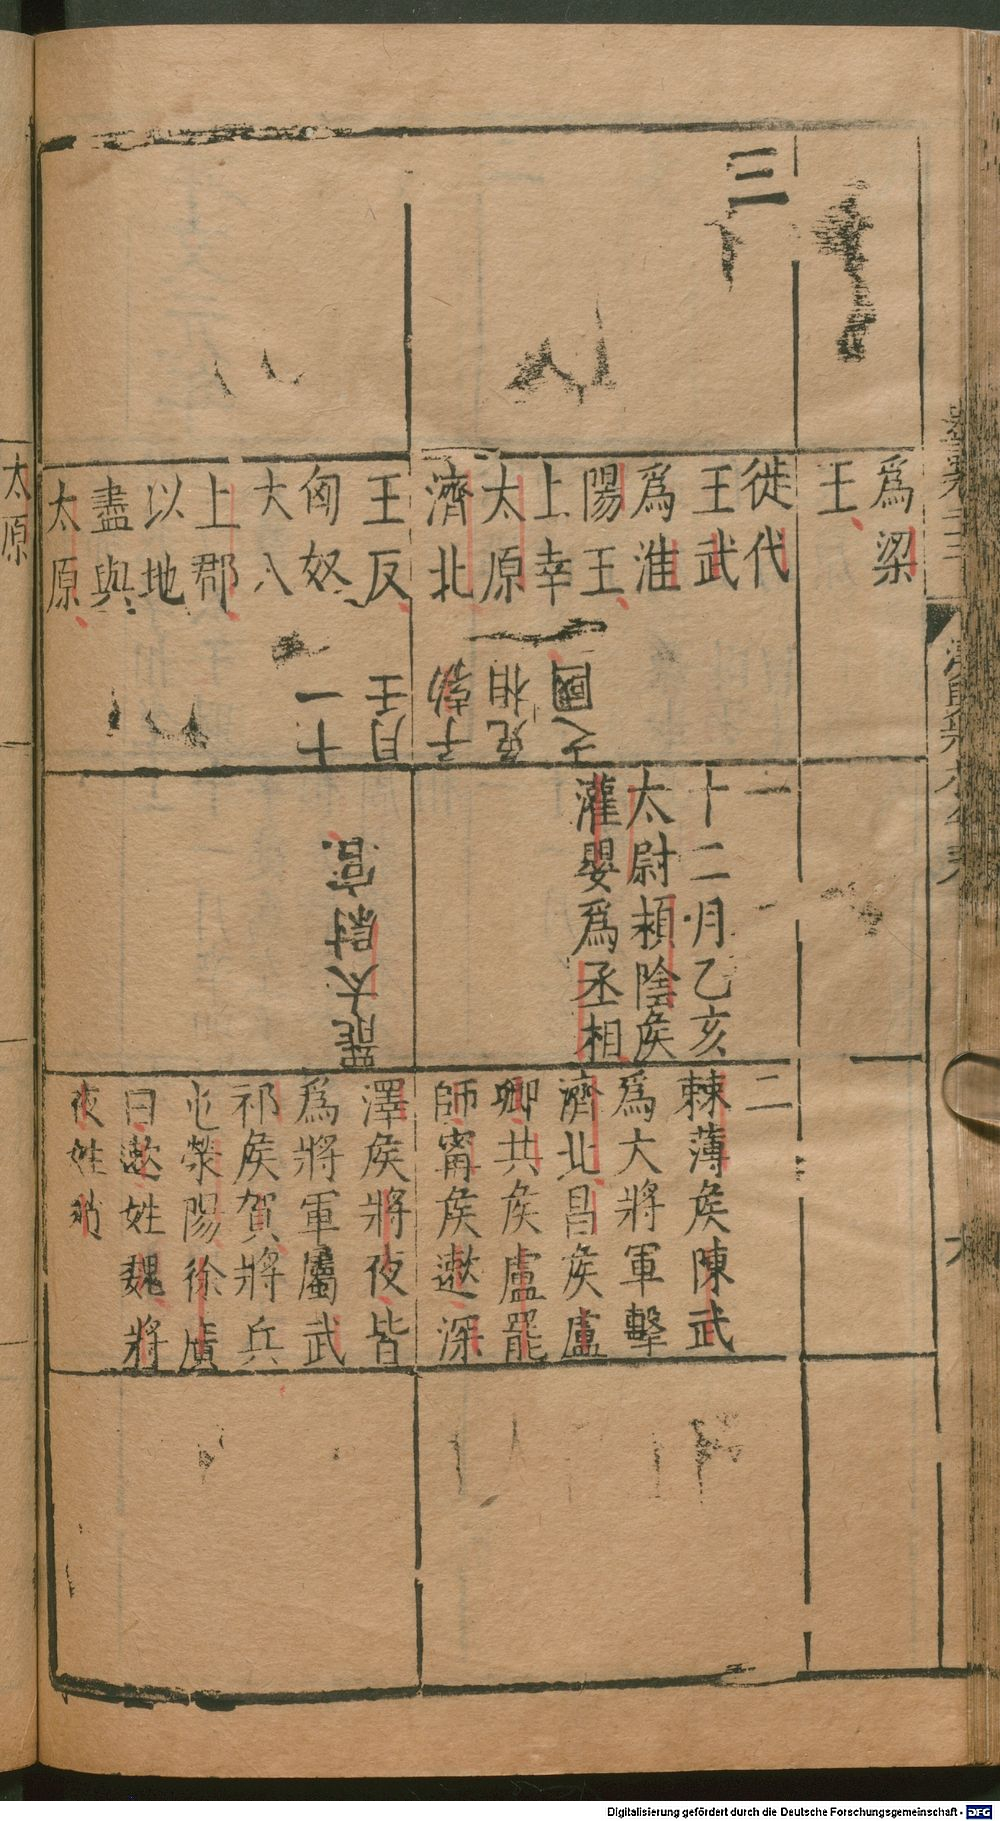 三
爲梁
王
徙代
王武
爲淮
陽王
上幸
太原
濟北
王反
匈奴
大入
上郡
以地
盡與
太原
十一
月壬
子勃
免相
之國
一
十二月乙亥
太尉潁陰矦
灌嬰爲丞相
罷太尉官
二
棘薄矦陳武
爲大將軍擊
濟北昌矦盧
卿共矦盧罷
師甯矦遫深
澤矦將夜皆
爲將軍屬武
祁矦賀將兵
屯滎陽徐廣
曰遫姓魏將
夜姓
太原
Digitalisierung gefördert durch die Deutsche Forschungsgemeinschaft - DFG